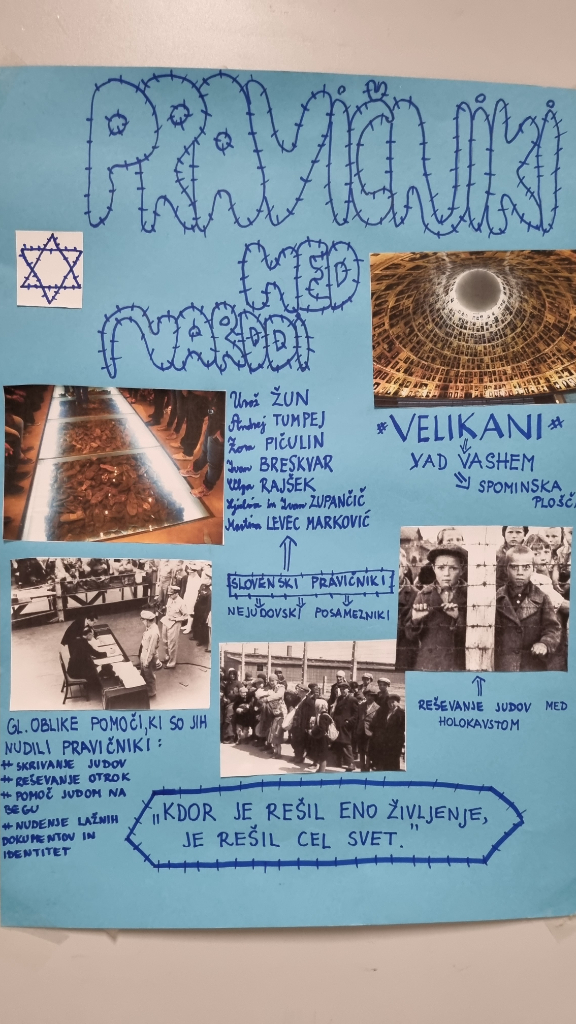 PRAVIČNIKI
MED
NARODI
Uroš ŽUN
Andrej TUMPEJ
Zora PIČULIN
Ivan BRESKVAR
Olga RAJŠEK
Ljubica in Ivan ZUPANČIČ
Martina LEVEC MARKOVIĆ
*VELIKANI*
YAD VASHEM
SPOMINSKA
PLOŠČ
SLOVENSKI PRAVIČNIKI
NEJUDOVSKI POSAMEZNIKI
REŠEVANJE JUDOV MED
HOLOKAVSTOM
GL. OBLIKE POMOČI, KI SO JIH
NUDILI PRAVIČNIKI:
# SKRIVANJE JUDOV
# REŠEVANJE OTROK
# POMOČ JUDOM NA
BEGU
# NUDENJE LAŽNIH
DOKUMENTOV IN
IDENTITET
„KDOR JE REŠIL ENO ŽIVLJENJE,
JE REŠIL CEL SVET."